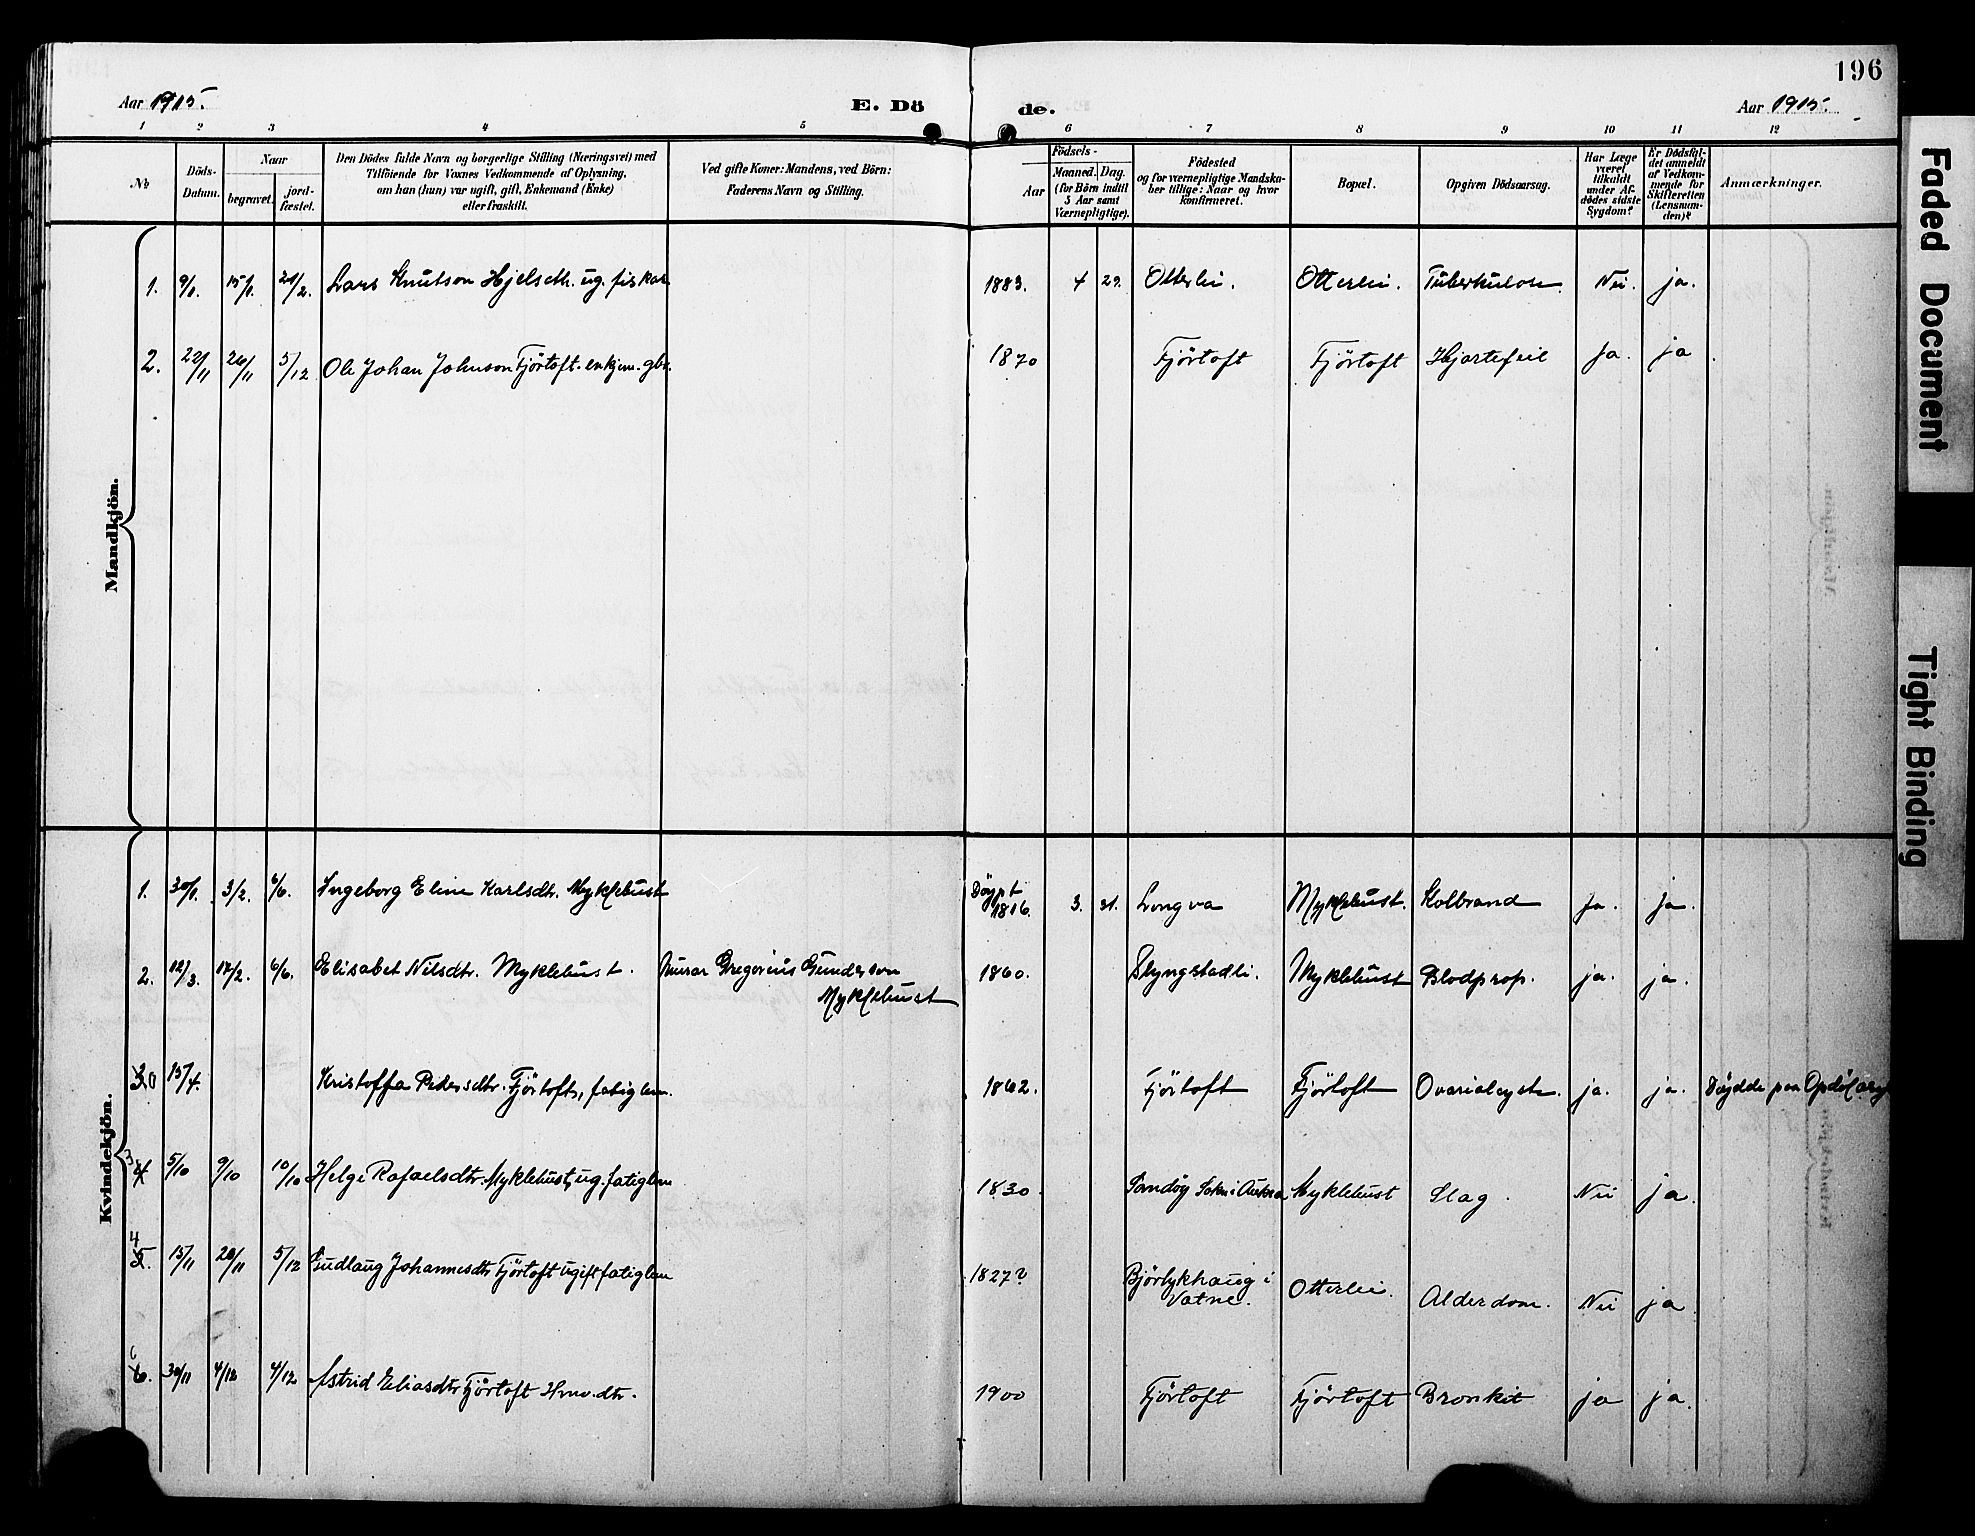 196
Aar 1915.
E. Dö de.
Aar 1915.
1 2 3 4 5 6 7 8 9 10 11 12
No
Döds-
Datum.
Naar
begravet.
jord-
fæstet.
Den Dödes fulde Navn og borgerlige Stilling (Næringsvei) med
Tilföiende for Voxnes Vedkommende af Oplysning,
om han (hun) var ugift, gift, Enkemand (Enke)
eller fraskilt.
Ved gifte Koner: Mandens, ved Börn:
Faderens Navn og Stilling.
Födsels-
Aar
Maaned. Dag.
(for Börn indtil
5 Aar samt
Værnepligtige).
Födested
og for værnepligtige Mandska-
ber tillige: Naar og hvor
konfirmeret.
Bopæl.
Opgiven Dödsaarsag.
Har Læge
været
tilkaldt
under Af-
dödes sidste
Sygdom?
Er Dödsfal-
det anmeldt
af Vedkom-
mende for
Skifteretten
(Lensman-
den)?
Anmærkninger.
Mandkjön.
1. 9/1. 15/1. 21/2. Lars Knutson Hjelseth. ug. fiskar. 1883. 4 29. Otterlei. Otterlei. Tuberkulose. Nei. ja.
2. 22/11 26/11 5/12 Ole Johan Johnson Fjörtoft. enkjem. gbr. 1870 Fjörtoft Fjörtoft Hjartefeil Ja. ja
Kvindekjön.
1. 30/1. 3/2. 6/6. Ingeborg Eline Karlsdtr. Myklebust Döypt 1816. 3. 31. Longva Myklebust. Kolbrand Ja. ja.
2. 12/3. 17/2. 6/6. Elisabet Nilsdtr. Myklebust. Gregorius Gunderson
Myklebust 1860. Slyngstadli. Myklebust Blodprop. ja. ja.
30 15/4. Kristoffa Pedersdtr. Fjörtoft, fatiglem. 1862. Fjörtoft Fjörtoft Ovarialcyste. ja. ja. Döydde paa Opdöl
3 4 5/10 9/10 10/10 Helge Rafaelsdtr. Myklebust, ug. fatiglem 1830. Sandöy Sokn i Aukra Myklebust Slag. Nei ja
4 5. 15/11 20/11 5/12 Gudlaug Johannesdtr Fjörtoft ugift fatiglem 1827? Björlykhaug i
Vatne. Otterlei. Alderdom. Nei ja
6. 30/11 4/12 4/12 Astrid Eliasdtr Fjörtoft Hmv. dtr. 1900 Fjörtoft Fjörtoft Bronkit ja ja.
Faded Document
Tight Binding